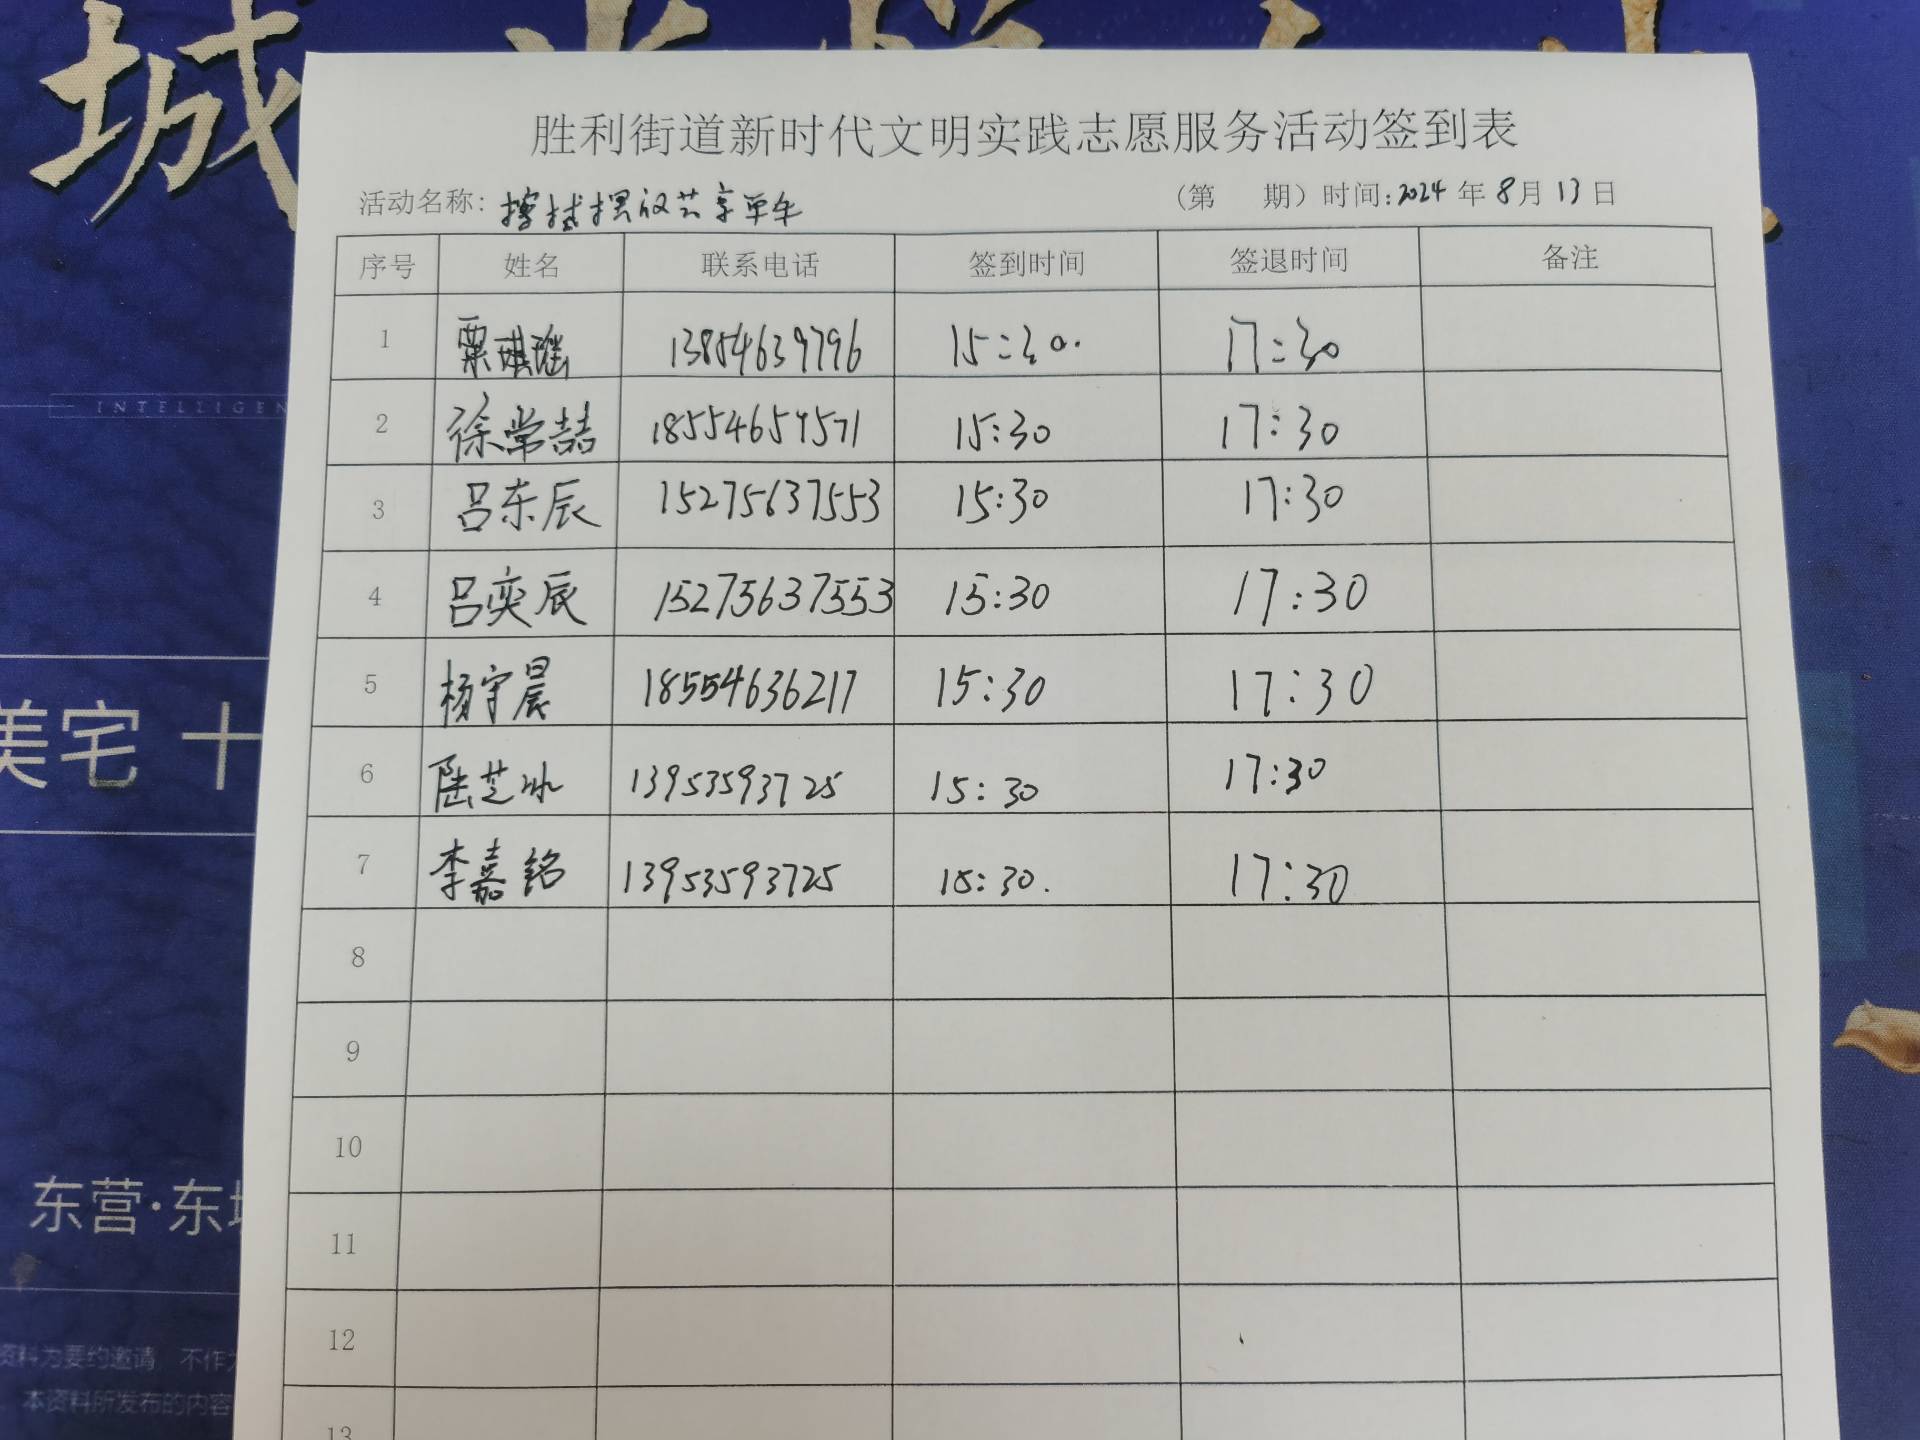 城
胜利街道新时代文明实践志愿服务活动签到表
活动名称：擦拭摆放共享单车 （第 期）时间：2024 年 8 月 13 日
序号 姓名 联系电话 签到时间 签退时间 备注
1 栗琪瑶 13854639796 15:30. 17:30
2 徐常喆 18554657571 15:30 17:30
3 吕东辰 15275637553 15:30 17:30
4 吕奕辰 15275637553 15:30 17:30
5 杨宇晨 18554636217 15:30 17:30
6 陆芝冰 13953593725 15:30 17:30
7 李嘉铭 13953593725 15:30. 17:30
8
9
10
11
12
13
INTELLIGEN
美宅 十
东营·东城
资料为要约邀请 不作为
本资料所发布的内容